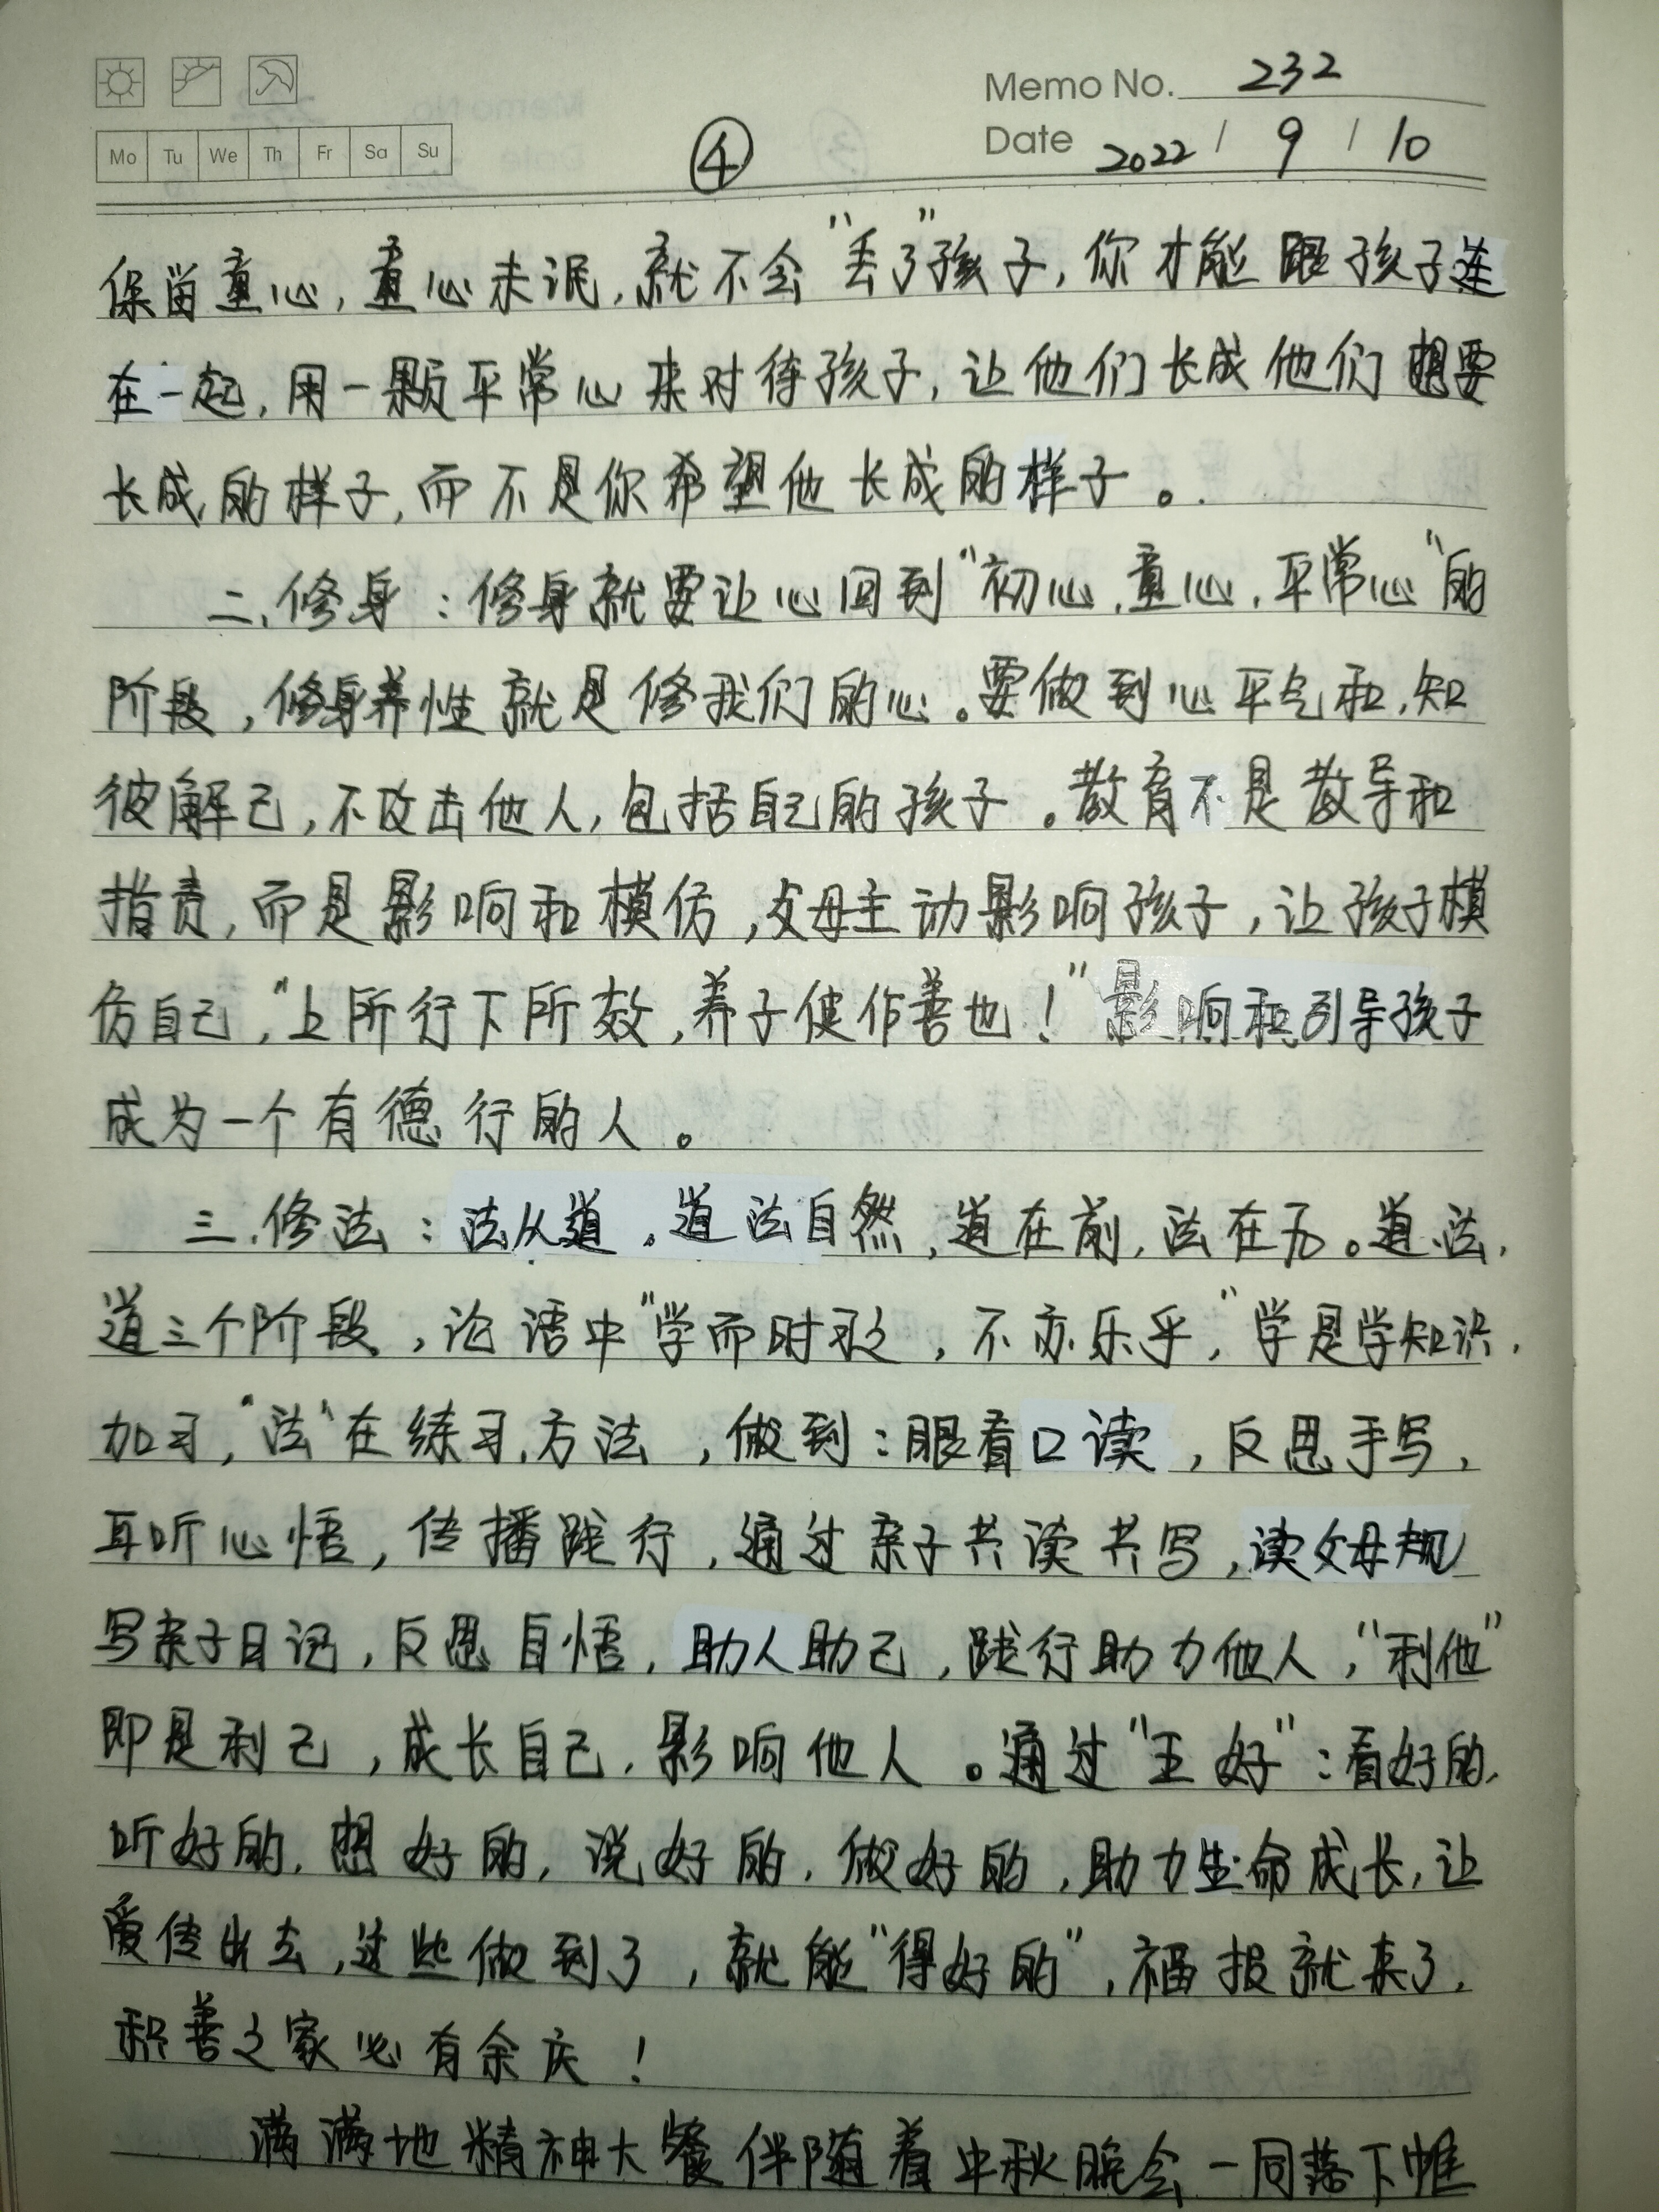 Memo No. 232
Mo Tu We Th Fr Sa Su
④
Date 2022 / 9 / 10
保留童心，童心未泯，就不会“丢了”孩子，你才能跟孩子连
在一起，用一颗平常心来对待孩子，让他们长成他们想要
长成的样子，而不是你希望他长成的样子。
二、修身：修身就要让心回到“初心，童心，平常心”的
阶段，修身养性就是修我们的心。要做到心平气和，知
彼解己，不攻击他人，包括自己的孩子。教育不是教导和
指责，而是影响和模仿，父母主动影响孩子，让孩子模
仿自己，“上所行下所效，养子使作善也！”影响和引导孩子
成为一个有德行的人。
三、修法：法从道，道法自然，道在前，法在后。道、法，
道三个阶段，论语中“学而时习之，不亦乐乎”，学是学知识，
加习，“法”在练习，方法，做到：眼看口读，反思手写，
耳听心悟，传播践行，通过亲子共读共写，读父母规
写亲子日记，反思自悟，助人助己，践行助力他人，“利他”
即是利己，成长自己，影响他人。通过“五好”：看好的，
听好的，想好的，说好的，做好的，助力生命成长，让
爱传出去，这些做到了，就能“得好的”，福报就来了，
积善之家必有余庆！
满满地精神大餐伴随着中秋晚会一同落下帷